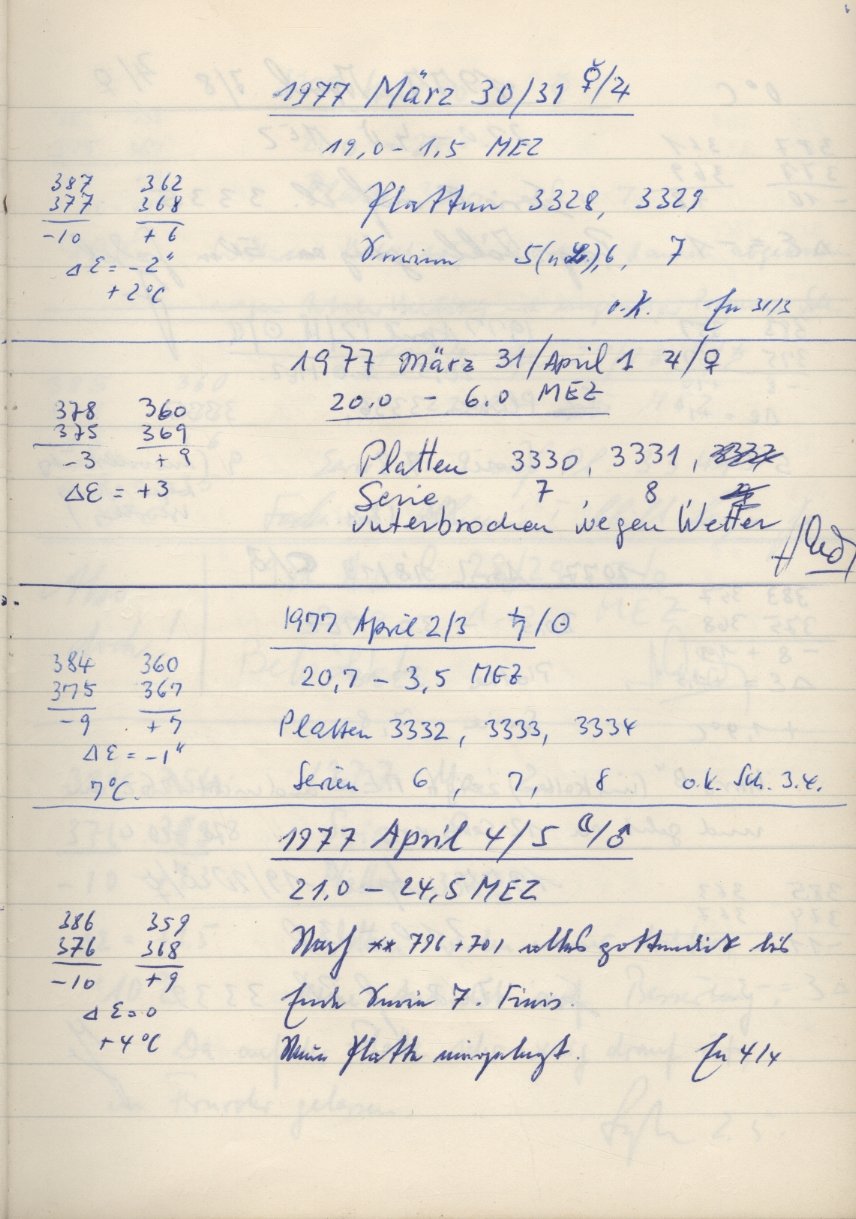 1977 März 30/31 ☿/♃
19,0 - 1,5 MEZ
387 362
377 368
-10 +6
Platten 3328, 3329
Serien 5(n. ),6, 7
Δε = -2"
+2°C
o.K. 31/3
1977 März 31/April 1 ♃/♀
20.0 - 6.0 MEZ
378 360
375 369
-3 +9
Δε = +3
Platten 3330, 3331,
Serie 7, 8,
unterbrochen wegen Wetter
1977 April 2/3 ♄/☉
384 360
375 367
-9 +7
20,7 - 3,5 MEZ
Platten 3332, 3333, 3334
Δε = -1"
7°C.
Serien 6, 7, 8 o.k. Sch. 3.4.
1977 April 4/5 ☾/♂
21.0 - 24,5 MEZ
386 359
376 368
-10 +9
Nach ** 796+701 alles zottendicht bis
Ende Serie 7. Finis.
Δε=0
+4°C
Neue Platte eingelegt. 4/4